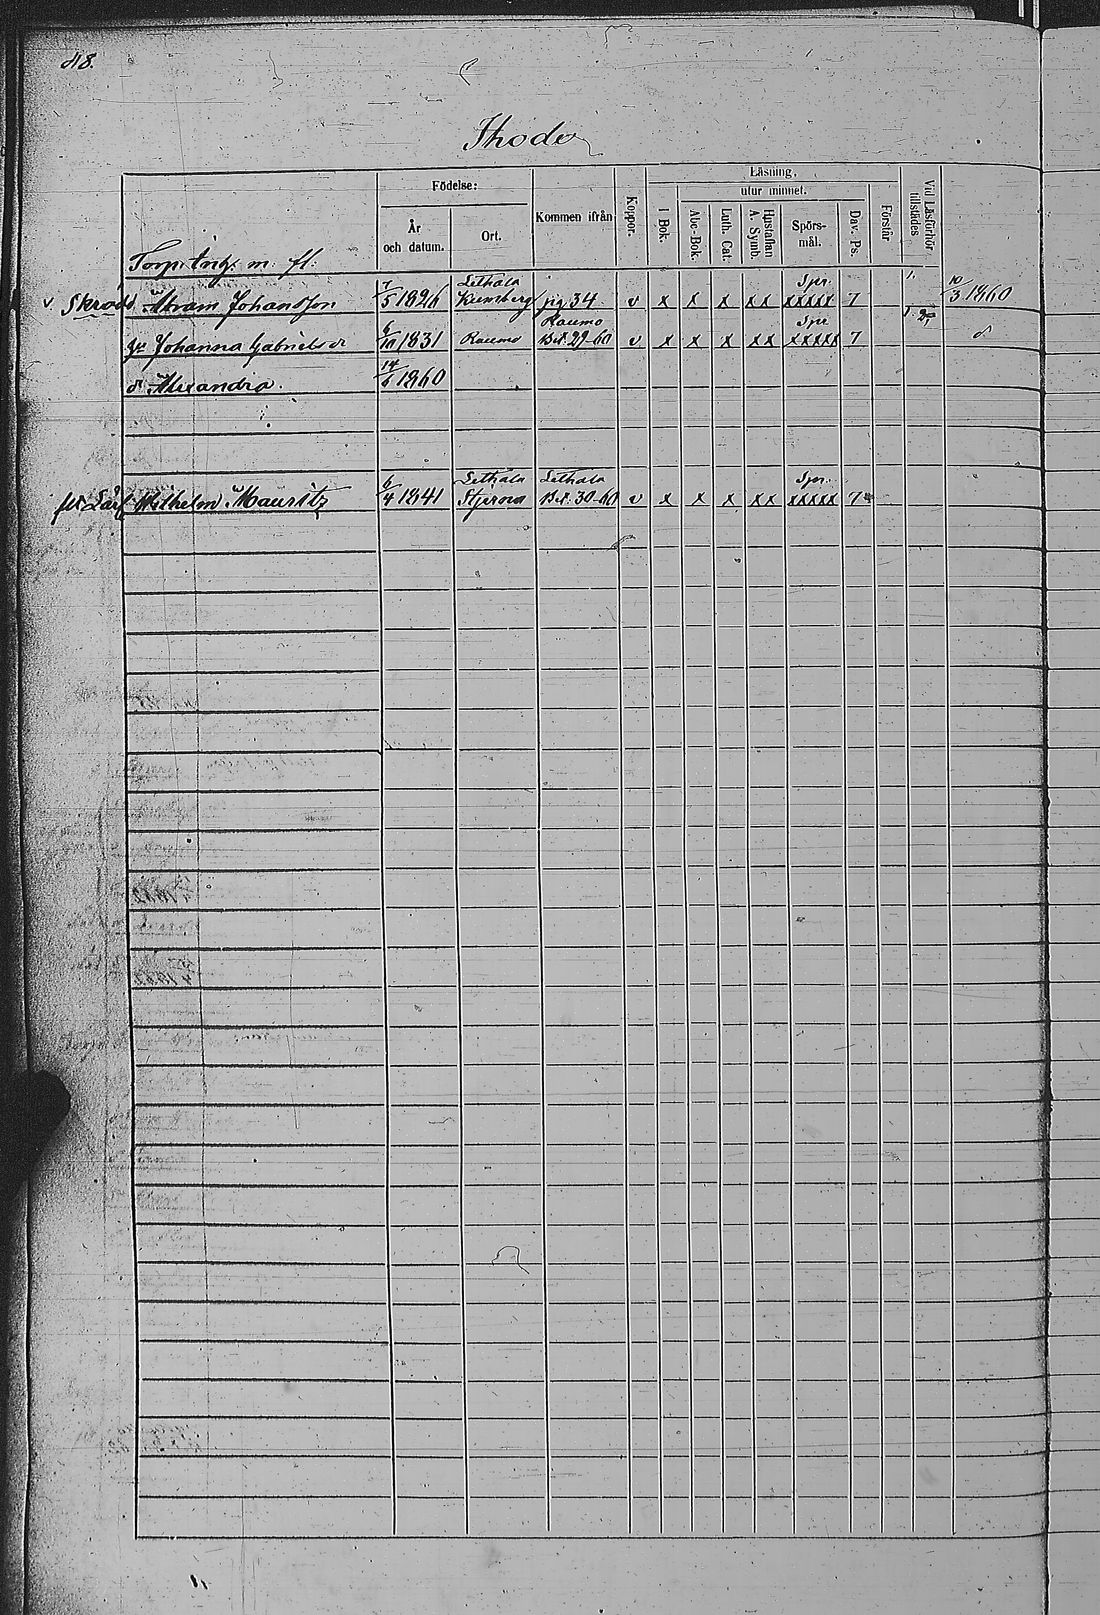 Thodo
Födelse:
År och datum.
Ort.
Kommen ifrån
Koppor.
Läsning.
I Bok.
utur minnet.
Abc-Bok.
Luth. Cat.
Hustaflan A. Symb.
Spörs-mål.
Dav. Ps.
Förstår
Vid Läsförhör tillstädes
m. fl.
v Johansson 7/5 1826 Lethala Kumberg pig. 34 v x x x xx Spr xxxxx 7 1. 10/3 1860
Johanna Gabriels dr 6/10 1831 Raumo Raumo Bet. 29-60 v x x x xx Spr xxxxx 7
dr Alexandra. 14/6 1860
Wilhelm Mauritz 6/4 1841 Lethala Stjerna Lethala Bet. 30-60 v x x x xx Spr. xxxxx 7